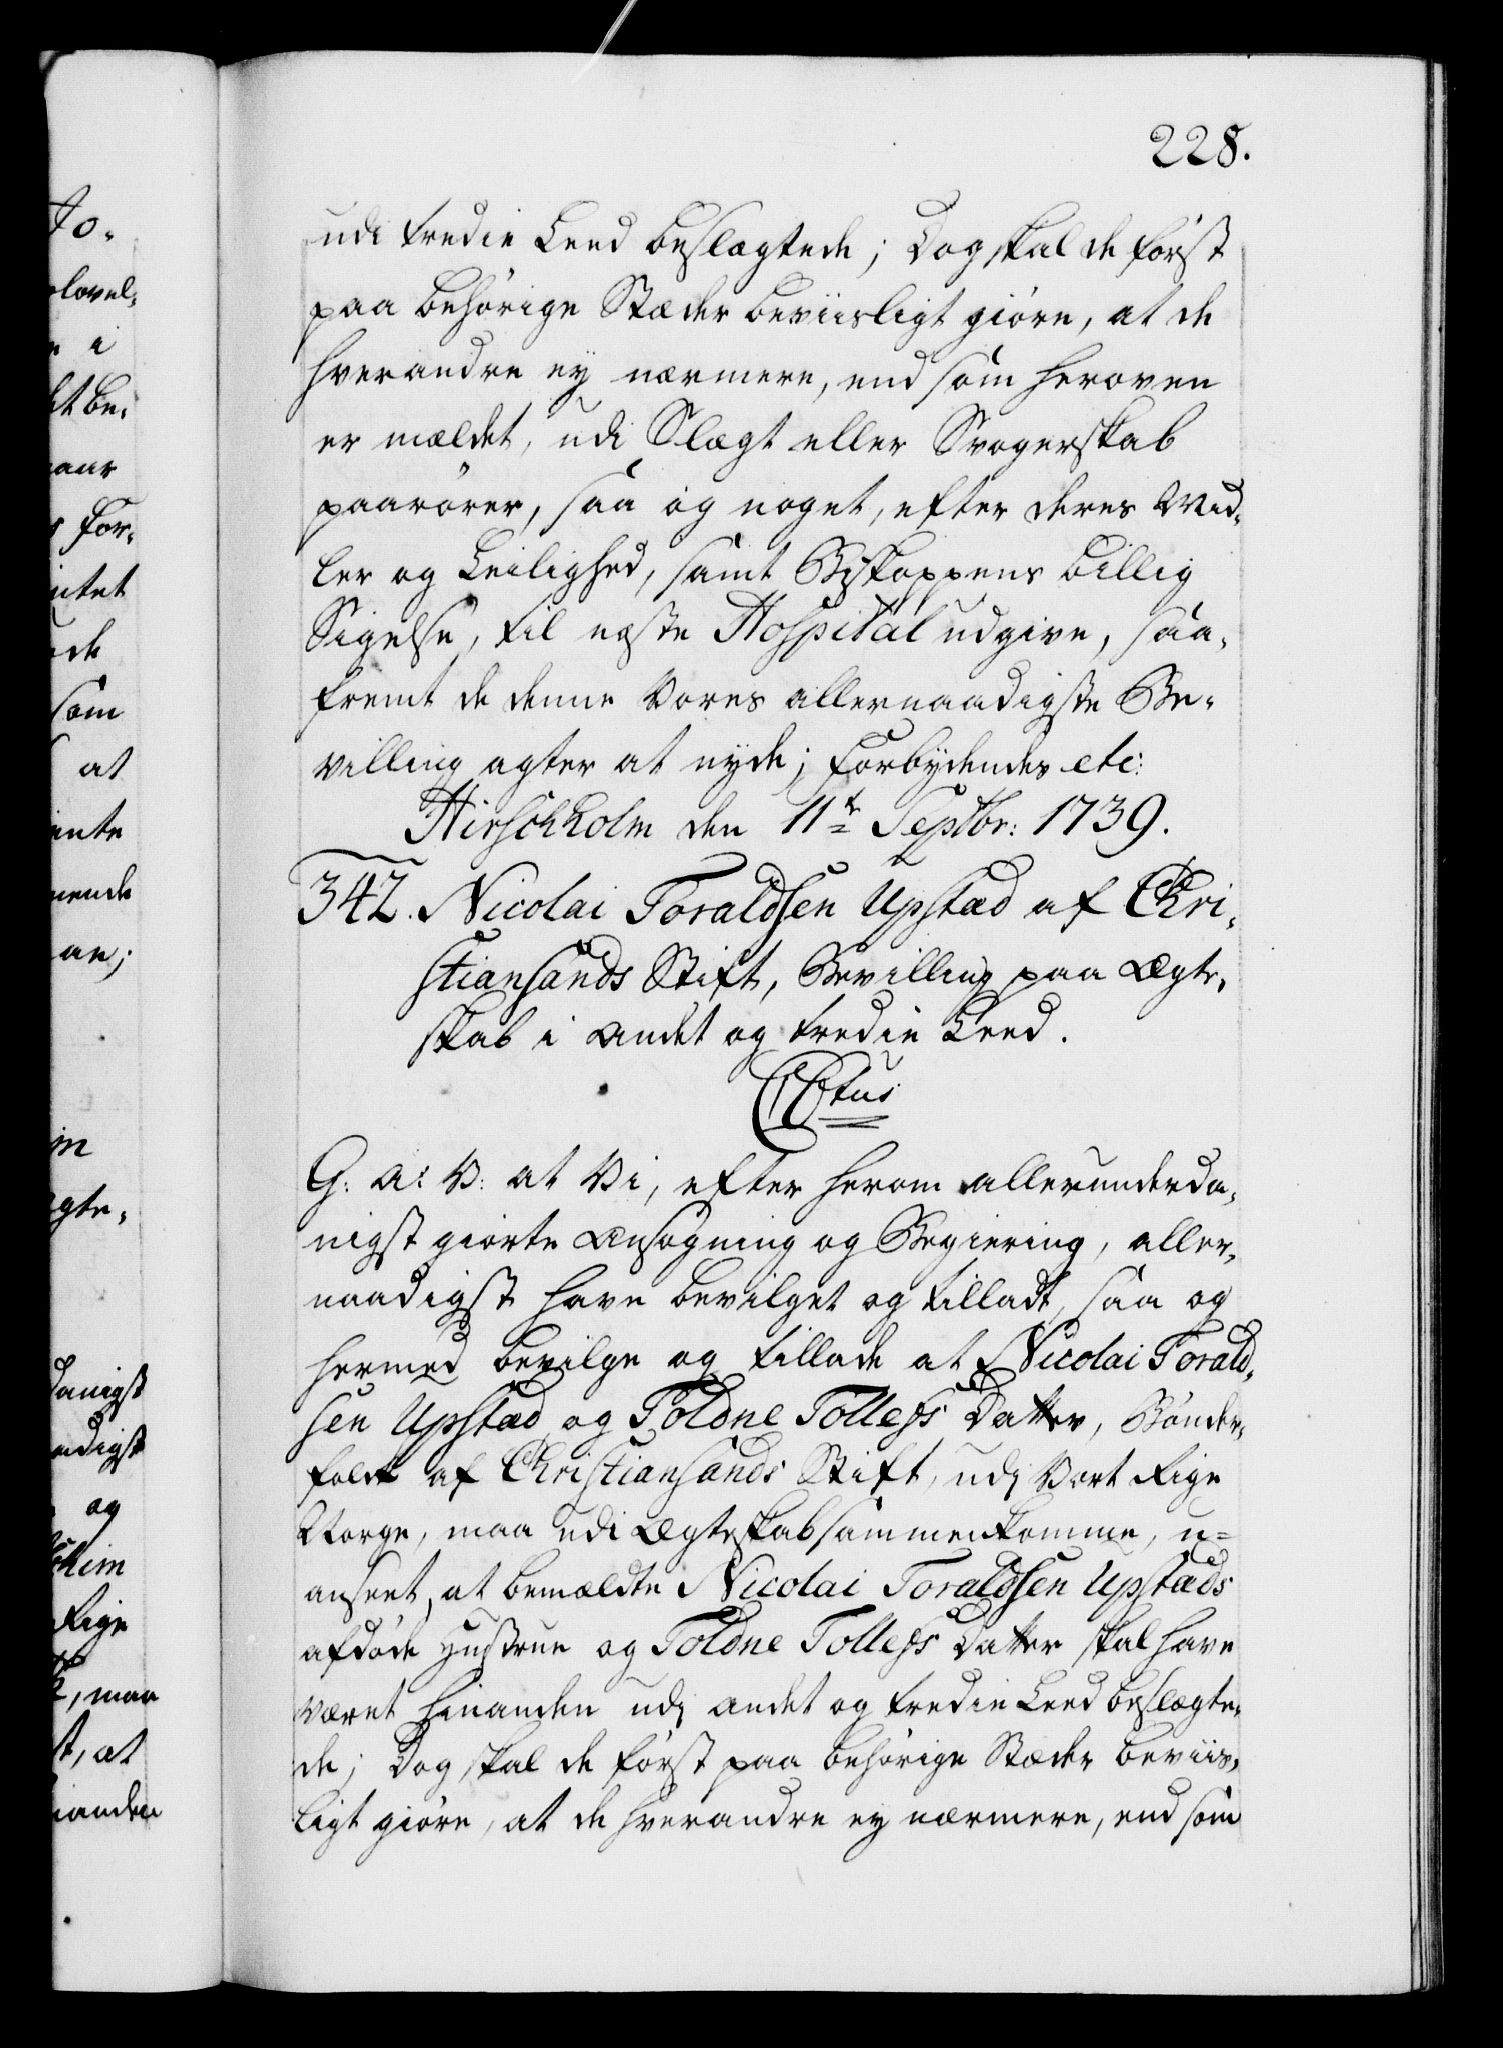 228.
udi tredie Leed beslægtede; Dog skal de først
paa behørige Stæder beviisligt giøre, at de
hverandre ey nærmere, end som heroven
er mældet, udi Slægt eller Svogerskab
paarører, saa og noget, efter deres Mid-
ler og Leilighed, samt Biskoppens billig
Sigelse, til næste Hospital udgive, saa-
fremt de denne Vores allernaadigste Be-
villing agter at nyde; Forbydendes etc:
Hirschholm den 11te Septbr: 1739.
342. Nicolai Toraldsen Upstad af Chri-
stiansands Stift, Bevilling paa Ægte-
skab i andet og tredie Leed.
C6tus
G: A: V: at Vi, efter herom allerunderda-
nigst giorte Ansøgning og Begiering, aller-
naadigst have bevilget og tilladt, saa og
hermed bevilge og tillade at Nicolai Torald-
sen Upstad og Toldne Tollefs Datter, Bønder-
folk af Christiansands Stift, udi Vort Rige
Norge, maa udi Ægteskab sammenkomme, u-
anseet, at bemældte Nicolai Toraldsen Upstads
afdøde Hustrue og Toldne Tollefs Datter skal have
været hinanden udi andet og tredie Leed beslægte-
de; Dog skal de først paa behørige Stæder beviis-
ligt giøre, at de hverandre ey nærmere, end som